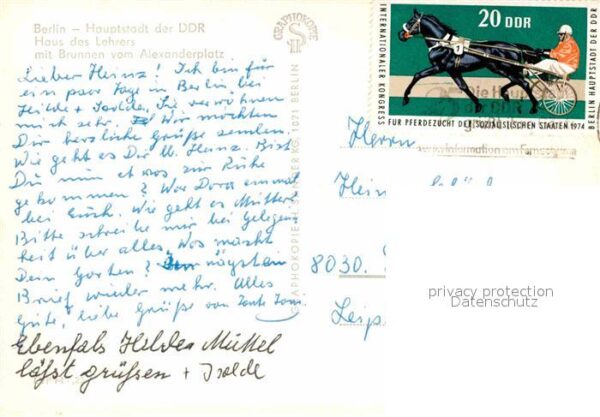 Berlin – Hauptstadt der DDR
Haus des Lehrers
mit Brunnen vom Alexanderplatz
Lieber Heinz! Ich bin für
ein paar Tage in Berlin bei
Hilde + Isolde. Sie verwöhnen
mich sehr. Wir möchten
Dir herzliche Grüße senden.
Wie geht es Dir U. Heinz. Bist
Du nun etwas zur Ruhe
gekommen? War Dora einmal
bei Euch. Wie geht es Mutter?
Bitte schreibe mir bei Gelegen
heit über alles. Was macht
Dein Garten? Im nägsten
Brief wieder mehr. Alles
Gute, liebe Grüße von Tante
Ebenfals Hilde Müttel
läßt grüßen + Isolde
GRAPHOKOPIE
1071 BERLIN
INTERNATIONALER KONGRESS
20 DDR
FÜR PFERDEZUCHT DER SOZIALISTISCHEN STAATEN 1974
BERLIN HAUPTSTADT DER DDR
Die
der DDR
Information am Fernsehturm
Herrn
Hein
8030.
Leip
privacy protection
Datenschutz